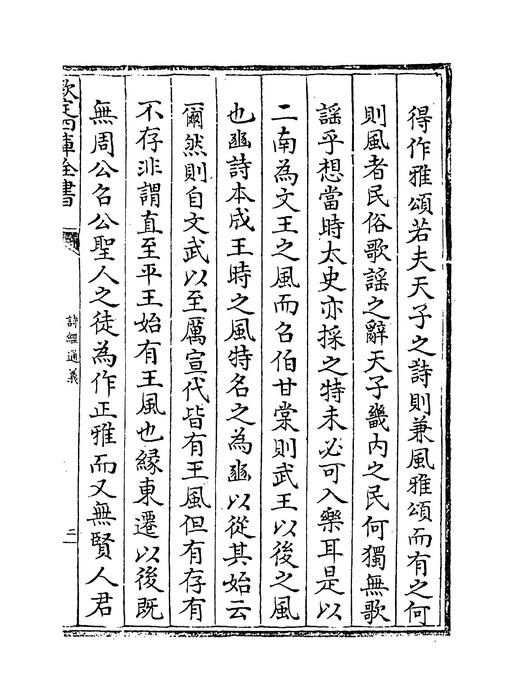 得作雅頌若夫天子之詩則兼風雅頌而有之何
則風者民俗歌謡之辭天子畿内之民何獨無歌
謡乎想當時太史亦採之特未必可入樂耳是以
二南為文王之風而召伯甘棠則武王以後之風
也豳詩本成王時之風特名之為豳以從其始云
爾然則自文武以至厲宣代皆有王風但有存有
不存非謂直至平王始有王風也緣東遷以後既
無周公召公聖人之徒為作正雅而又無賢人君
欽定四庫全書
詩經通義
二